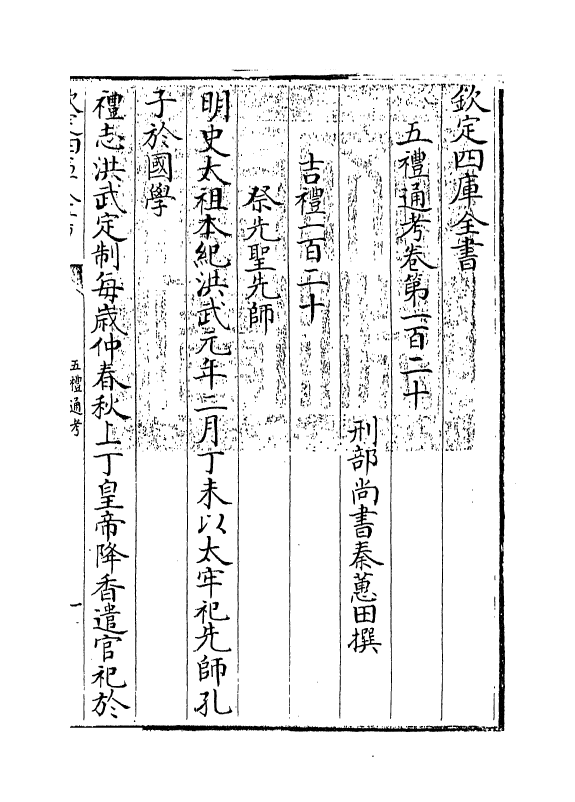 欽定四庫全書
五禮通考卷第一百二十
刑部尚書秦蕙田撰
吉禮一百二十
祭先聖先師
明史太祖本紀洪武元年二月丁未以太牢祀先師孔
子於國學
禮志洪武定制每歲仲春秋上丁皇帝降香遣官祀於
欽定四庫全書
五禮通考
一